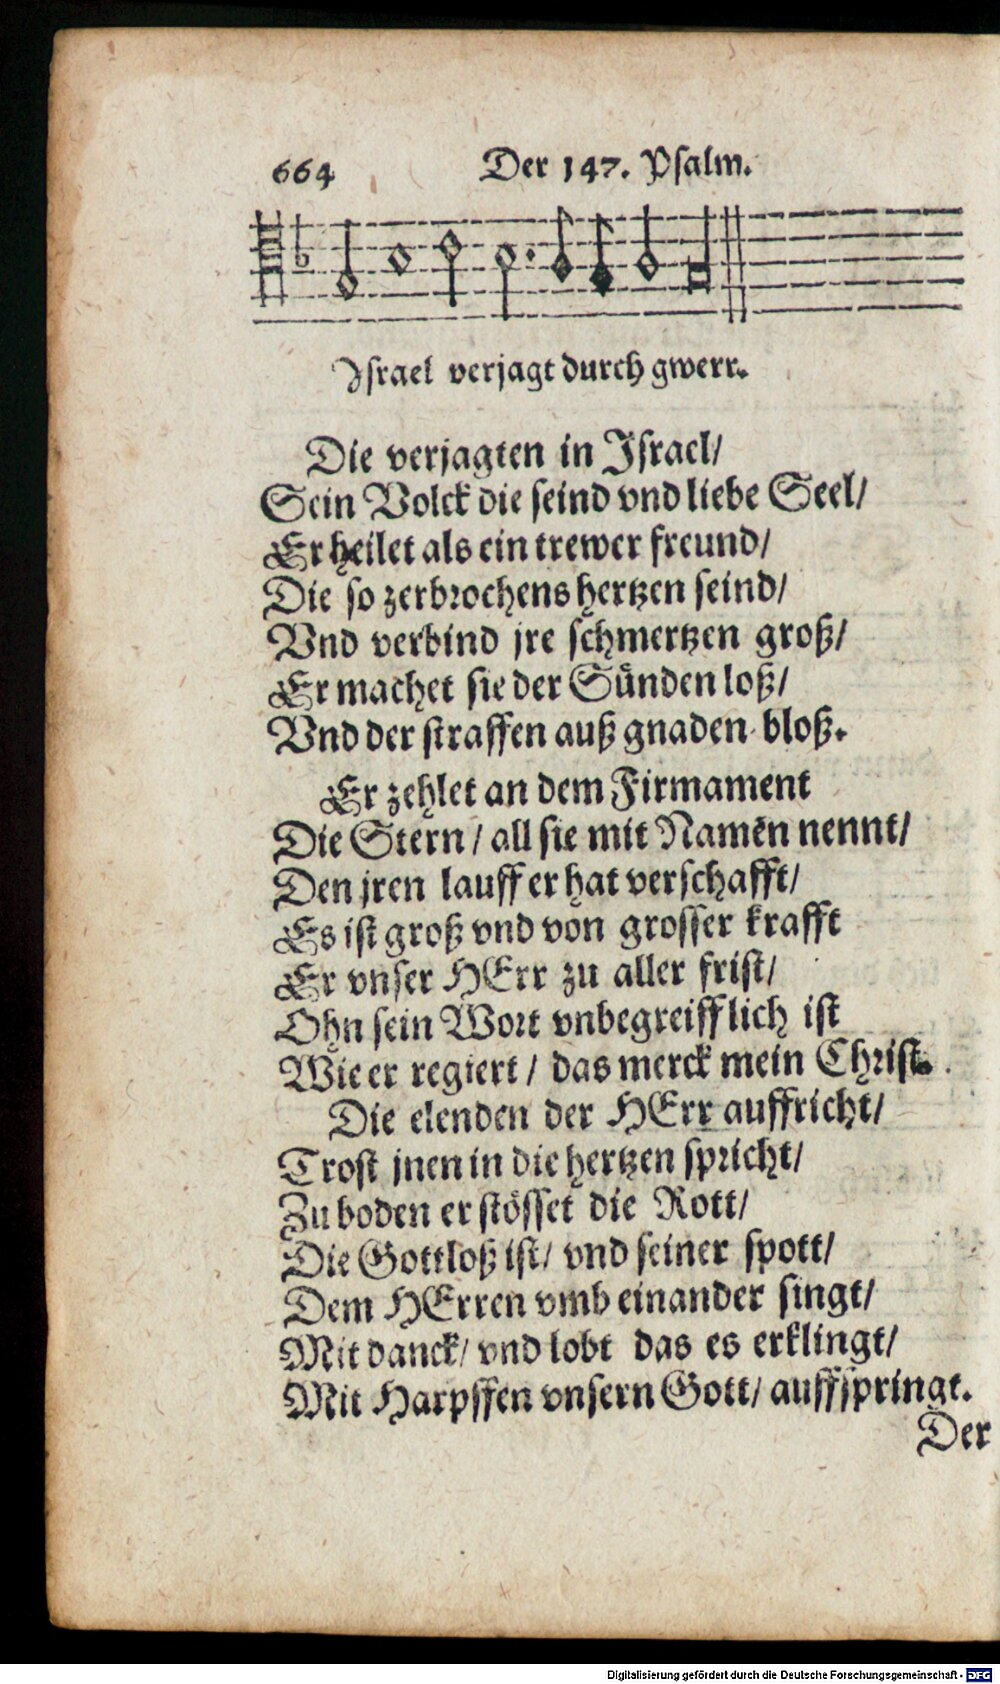 664 Der 147. Psalm.
Jsrael verjagt durch gwerr.
Die verjagten in Jsrael/
Sein Volck die seind vnd liebe Seel/
Er heilet als ein trewer freund/
Die so zerbrochens hertzen seind/
Vnd verbind jre schmertzen groß/
Er machet sie der Sünden loß/
Vnd der straffen auß gnaden bloß.
Er zehlet an dem Firmament
Die Stern / all sie mit Namēn nennt/
Den jren lauff er hat verschafft/
Es ist groß vnd von grosser krafft
Er vnser HErr zu aller frist/
Ohn sein Wort vnbegreifflich ist
Wie er regiert / das merck mein Christ.
Die elenden der HErr auffricht/
Trost jnen in die hertzen spricht/
Zu boden er stösset die Rott/
Die Gottloß ist/ vnd seiner spott/
Dem HErren vmb einander singt/
Mit danck/ vnd lobt das es erklingt/
Mit Harpffen vnsern Gott/ auffspringt.
Der
Digitalisierung gefördert durch die Deutsche Forschungsgemeinschaft - DFG